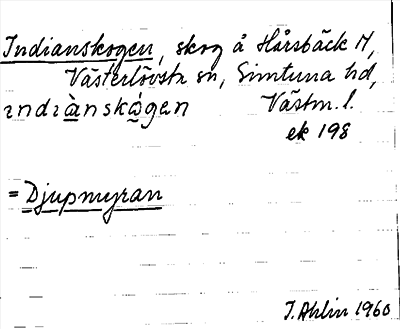 Indianskogen, skog å Hårsbäck M,
Västerlövsta sn, Simtuna hd,
ındıànskágen Västm. l.
ek 198
= Djupmyran
I. Ahlin 1960